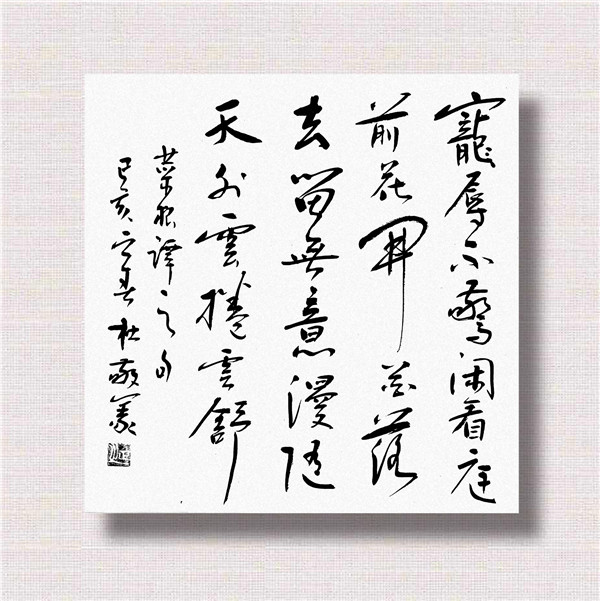 寵辱不驚闲看庭
前花開花落
去留無意漫随
天外雲捲雲舒
菜根譚之句
己亥春杜敬義